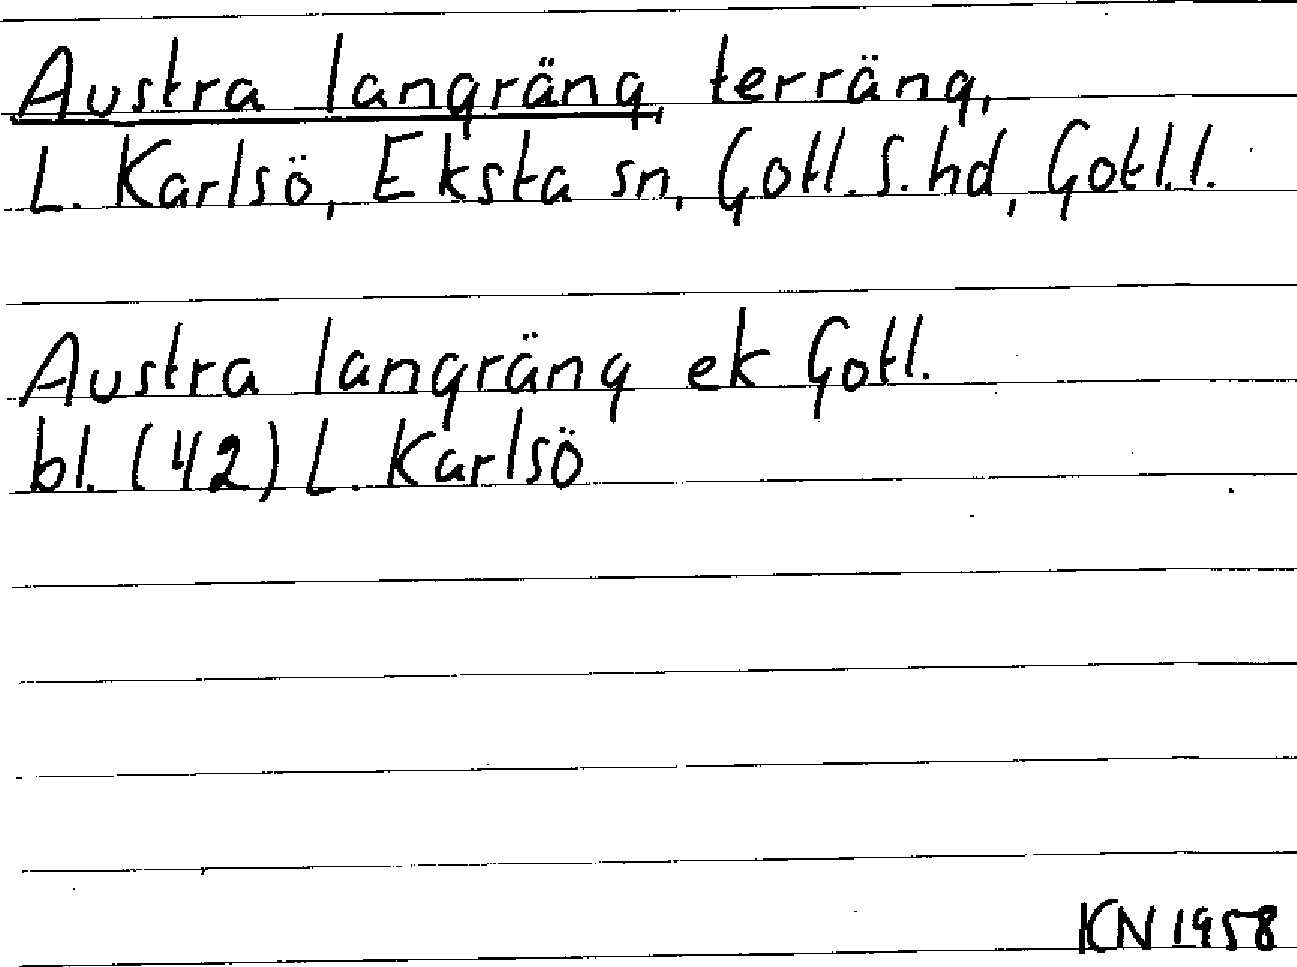 Austra langräng, terräng,
L. Karlsö, Eksta sn, Gotl. S. hd, Gotl. l.
Austra langräng ek Gotl.
bl. (42) L. Karlsö
KN 1958